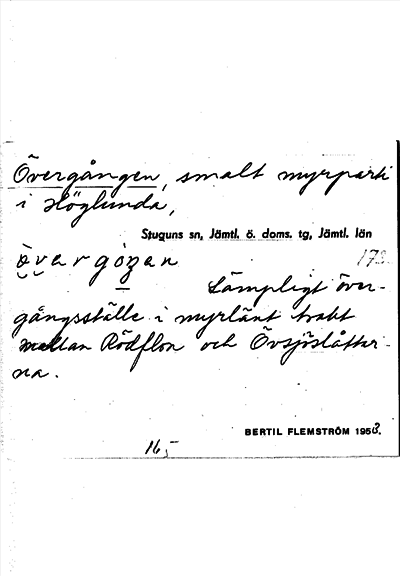 Övergången, smalt myrparti
i Höglunda,
Stuguns sn, Jämtl. ö. doms. tg, Jämtl. län
173.
Lämpligt över-
gångsställe i myrlänt trakt
mellan Rödflon och Övsjöslåttar-
na.
BERTIL FLEMSTRÖM 1953.
16,-